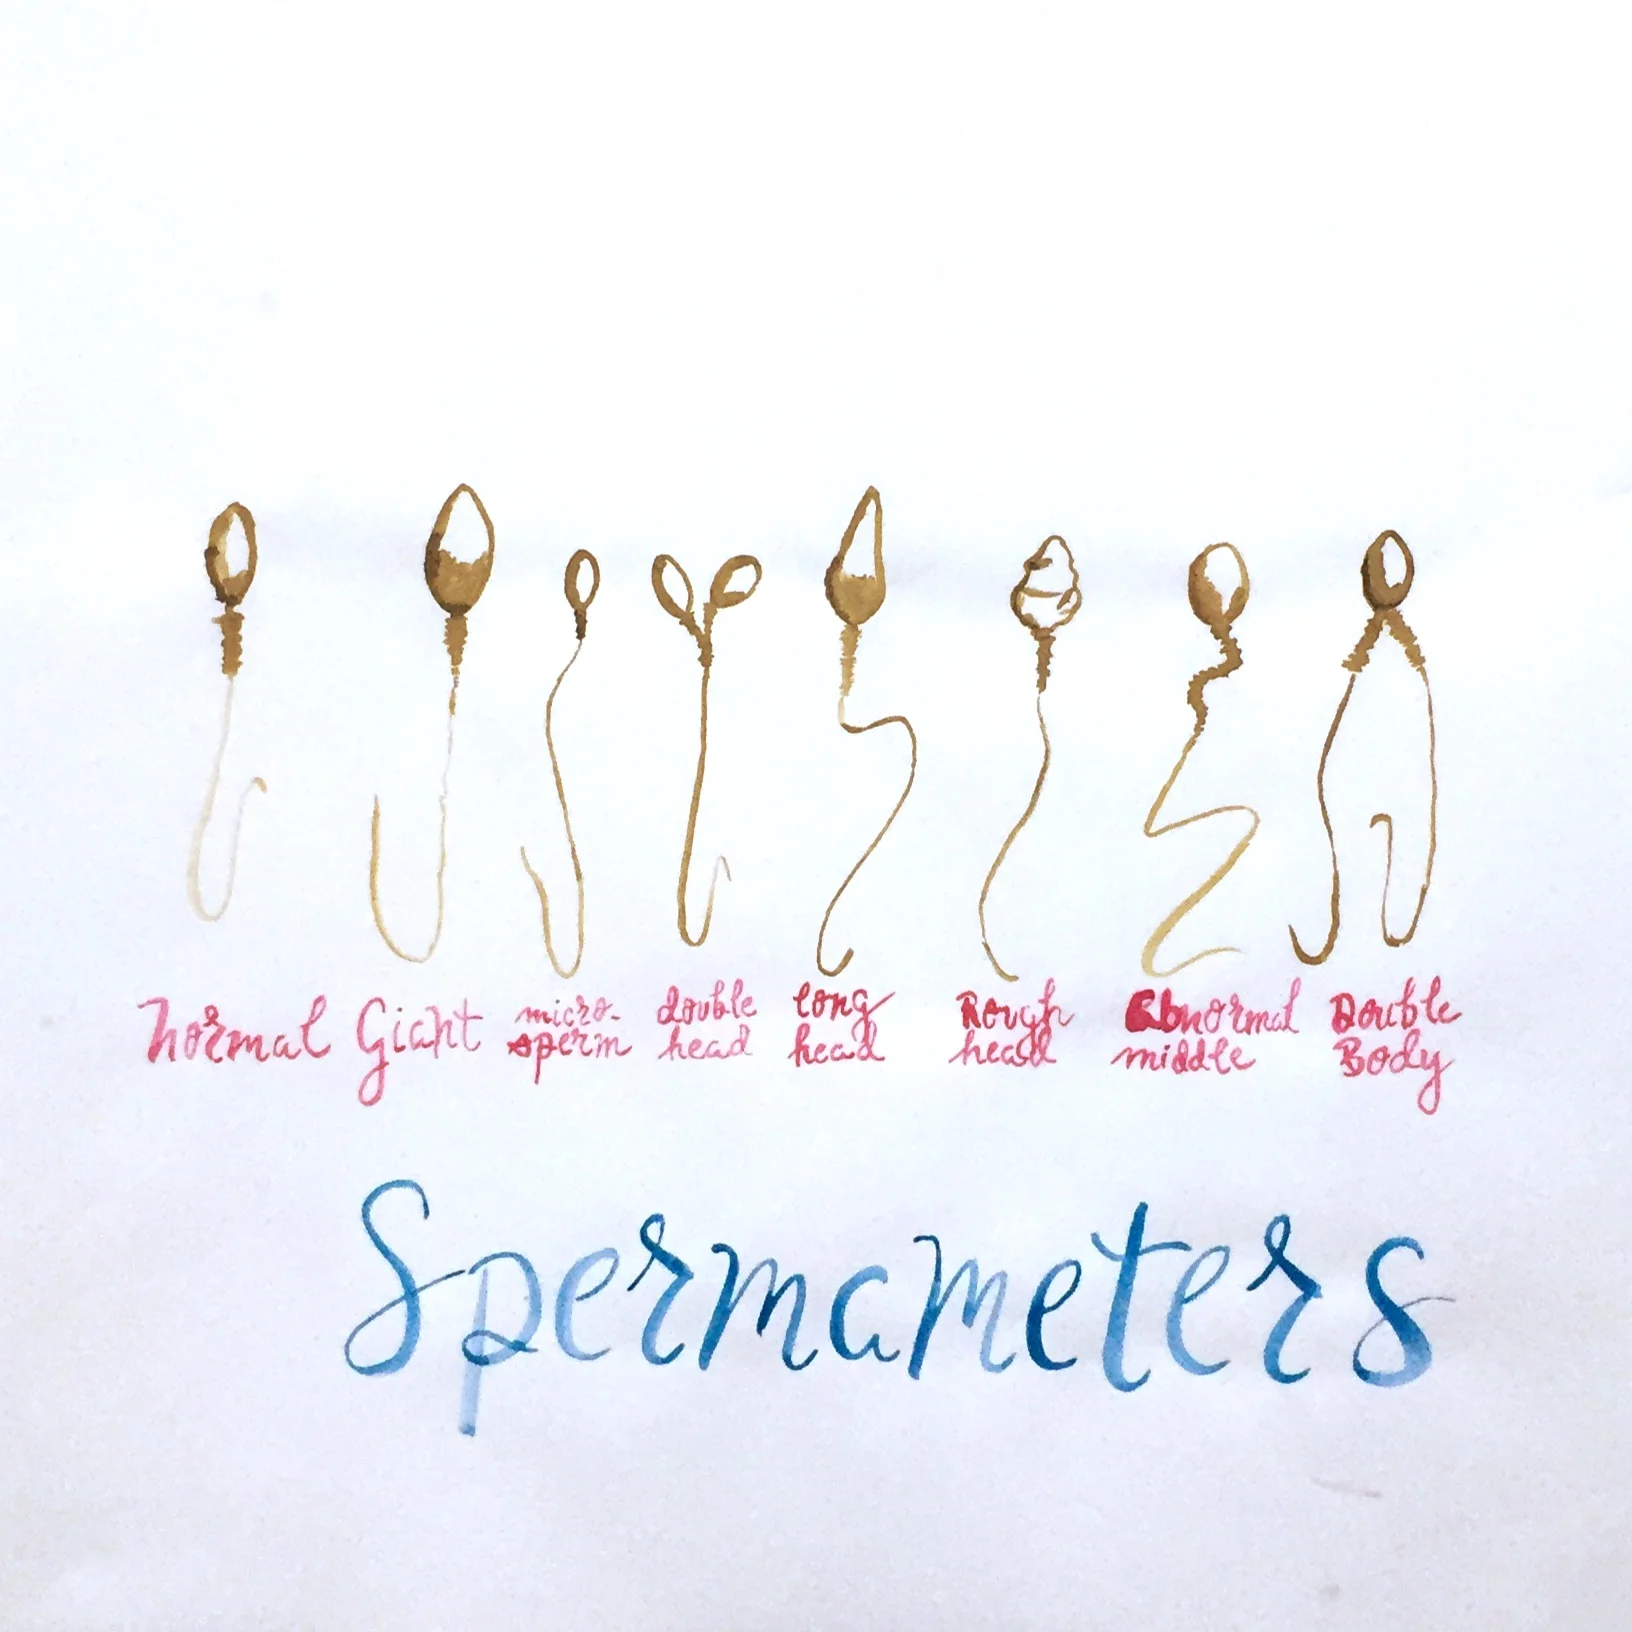 Normal
Giant
micro-
sperm
double
head
long
head
Rough
head
Abnormal
middle
Double
Body
Spermameters